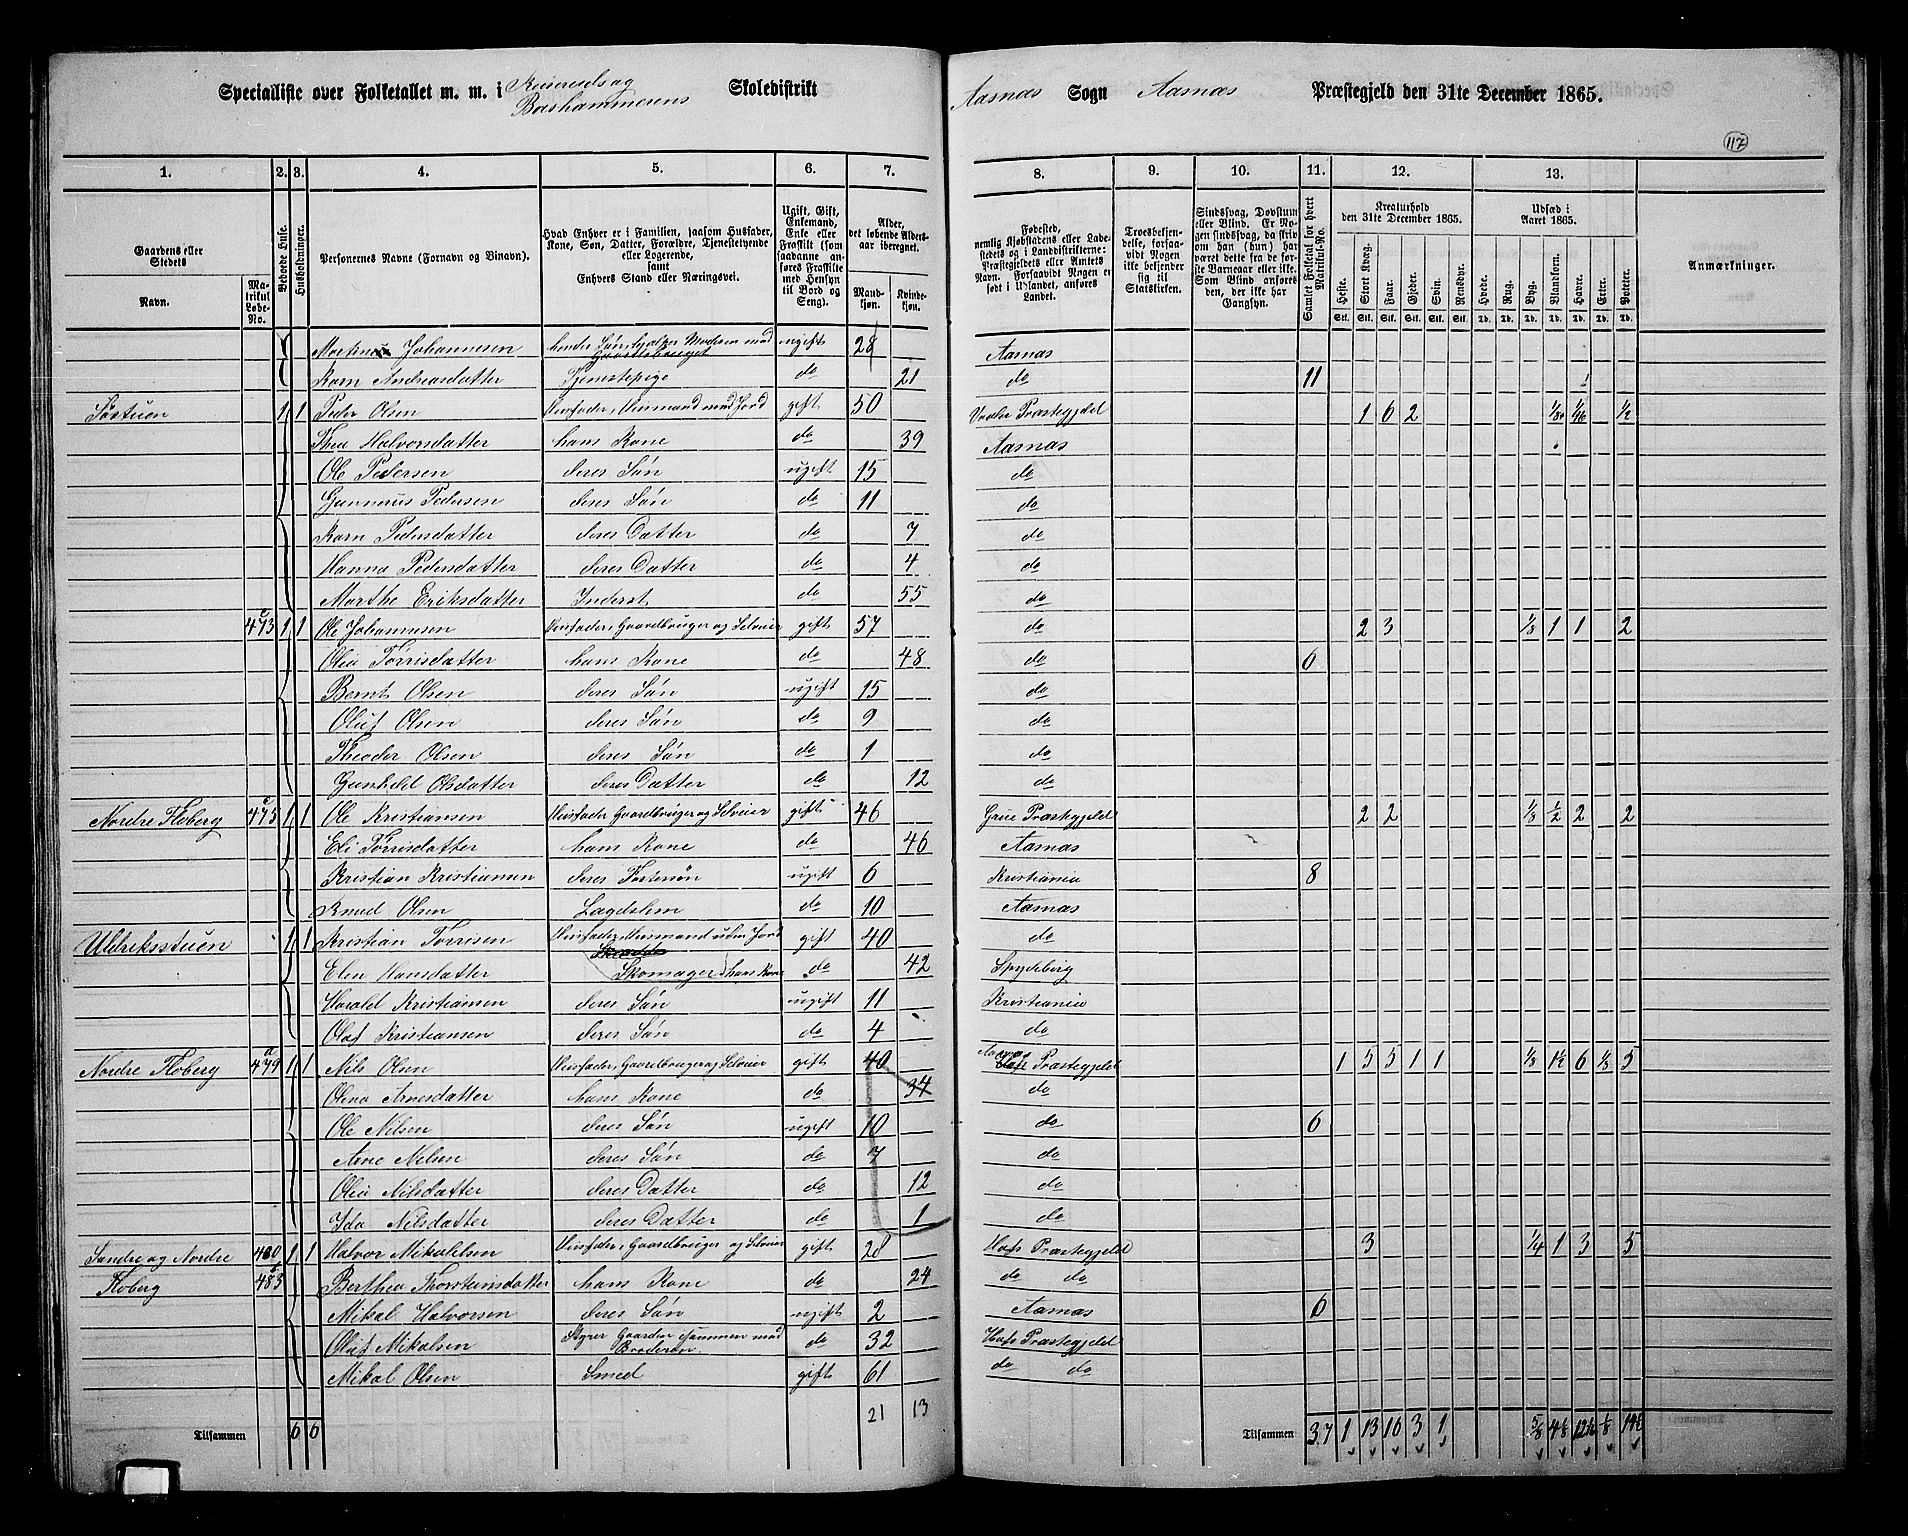 Specialliste over Folketallet m. m. i Skoledistrikt
Bashammerens
Aasnæs Sogn Aasnæs Præstegjeld den 31te December 1865.
117
1. 2. 3. 4. 5. 6. 7. 8. 9. 10. 11. 12. 13.
Gaardens eller Stedets
Navn.
Matrikul Løbe-No.
Beboede Huse.
Husholdninger.
Personernes Navne (Fornavn og Binavn).
Hvad Enhver er i Familien, saasom Husfader, Kone, Søn, Datter, Forældre, Tjenestetyende eller Logerende, samt Enhvers Stand eller Næringsvei.
Ugift, Gift, Enkemand, Enke eller Fraskilt (som saadanne anføres Fraskilte med Hensyn til Bord og Seng).
Alder, det løbende Alders-aar iberegnet.
Mandkjøn. Kvindekjøn.
Fødested, nemlig Kjøbstadens eller Ladestedets og i Landdistrikterne: Præstegjeldets eller Amtets Navn. Forsaavidt Nogen er født i Udlandet, anføres Landet.
Troesbekjendelse, forsaavidt Nogen ikke bekjender sig til Statskirken.
Sindssvag, Døvstum eller Blind. Er Nogen sindssvag, da skrives, om han (hun) har været dette fra de første Barneaar eller ikke. Som Blind anføres den, der ikke har Gangsyn.
Samlet Folketal for hvert Matrikul-No.
Kreaturhold den 31te December 1865.
Heste. Stort Kvæg. Faar. Gjeder. Svin. Rensdyr.
Udsæd i Aaret 1865.
Hvede. Rug. Byg. Blandkorn. Havre. Erter. Poteter.
Anmærkninger.
Martinus Johannesen hendes Søn, hjælper Moderen med Gaardsbruget ugift 28 Aasnæs
Karn Andreasdatter Tjenestepige do 21 do 11
Søstuen 1 1 Peder Olsen Husfader, Husmand med Jord gift 50 Vaaler Præstegjeld 1 6 2 1/8 1/16 1/2
Thea Halvorsdatter hans Kone do 39 Aasnæs
Ole Pedersen deres Søn ugift 15 do
Gunnerus Pedersen deres Søn do 11 do
Karn Pedersdatter deres Datter do 7 do
Hanna Pedersdatter deres Datter do 4 do
Marthe Eriksdatter Inderst do 55 do
473 c 1 1 Ole Johannesen Husfader, Gaardbruger og Selveier gift 57 do 2 3 1/8 1 1 2
Olea Torrisdatter hans Kone do 48 do 6
Bernt Olsen deres Søn ugift 15 do
Oluf Olsen deres Søn do 9 do
Theodor Olsen deres Søn do 1 do
Gunhild Olsdatter deres Datter do 12 do
Nordre Floberg 475 1 1 Ole Kristiansen Husfader, Gaardbruger og Selveier gift 46 Grue Præstegjeld 2 2 1/8 1/2 2 2
Eli Torrisdatter hans Kone do 46 Aasnæs
Kristian Kristiansen deres Fostersøn ugift 6 Kristiania 8
Knud Olsen Lægdslem do 10 Aasnæs
Uldriksstuen 1 1 Kristian Torrisen Husfader, Husmand uden Jord gift 40 do
Skomager
Elen Hansdatter hans Kone do 42 Spydeberg
Harald Kristiansen deres Søn ugift 11 Kristiania
Olaf Kristiansen deres Søn do 4 do
Nordre Floberg 479 a 1 1 Nils Olsen Husfader, Gaardbruger og Selveier gift 40 Aasnæs Præstegjeld 1 5 5 1 1 1/8 1 1/2 6 1/8 5
Olena Arnesdatter hans Kone do 34 do
Ole Nilsen deres Søn ugift 10 do 6
Arne Nilsen deres Søn do 7 do
Olea Nilsdatter deres Datter do 12 do
Ida Nilsdatter deres Datter do 1 do
Søndre og Nordre 480 1 1 Halvor Mikalelsen Husfader, Gaardbruger og Selveier gift 28 Hofs Præstegjeld 3 1/4 1 3 5
Floberg 483 Berthea Thorstensdatter hans Kone do 24 do do
Mikal Halvorsen deres Søn ugift 2 Aasnæs 6
Oluf Mikalsen Styrer Gaarden sammen med Broderen. do 32 Hofs Præstegjeld
Mikal Olsen Smed gift 61 do do
21 13
Tilsammen 6 6
Tilsammen 37 1 13 16 3 1 5/8 4 1/8 1/8